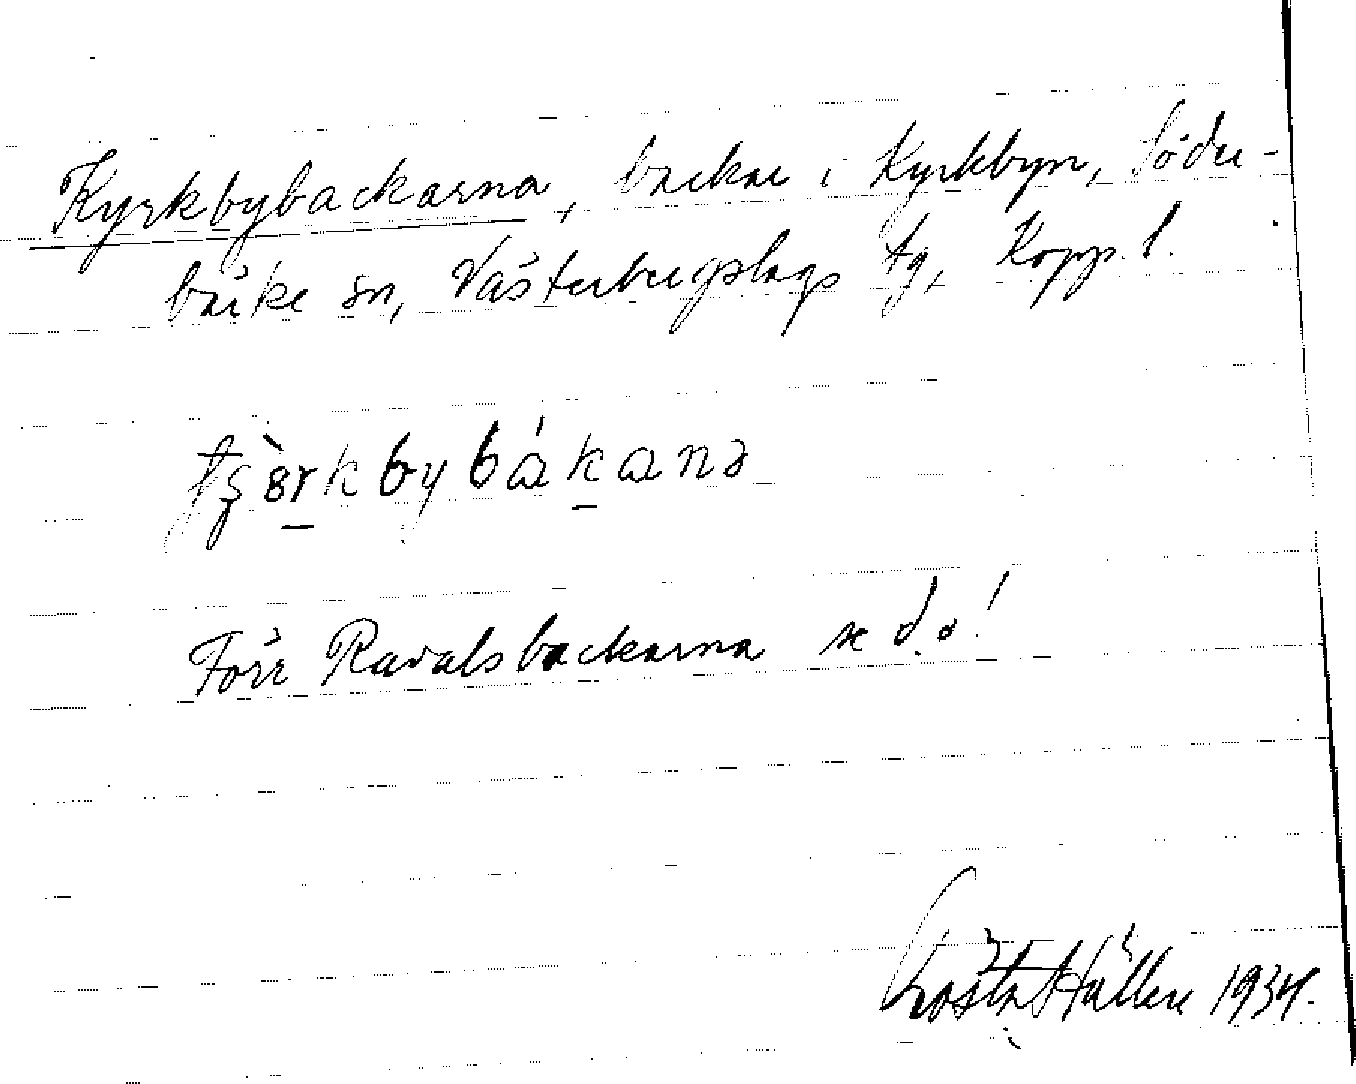 Kyrkbybackarna, backar i Kyrkbyn, Söder-
bärke sn, Västerbergslags tg, Kopp. l.
tʂɵ̀rkbybákanə
Förr Ravalsbackarna se d.o!
Gösta Hällen 1934.